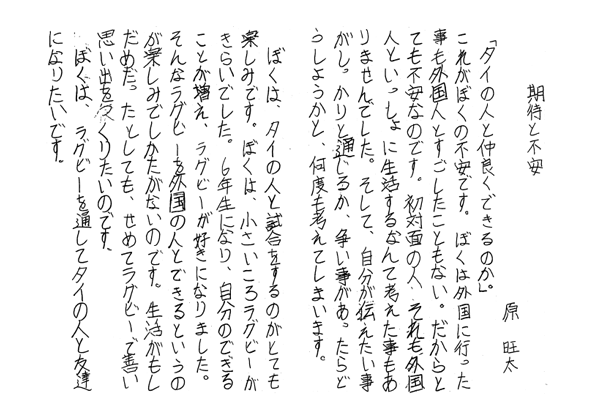 期待と不安
原　旺太
「タイの人と仲良くできるのか」。
これがぼくの不安です。ぼくは外国に行った
事も外国人とすごしたこともない。だからと
ても不安なのです。初対面の人、それも外国
人といっしょに生活するなんて考えた事もあ
りませんでした。そして、自分が伝えたい事
がしっかりと通じるか、争い事があったらど
うしようかと、何度も考えてしまいます。
ぼくは、タイの人と試合をするのがとても
楽しみです。ぼくは、小さいころラグビーが
きらいでした。6年生になり、自分のできる
ことが増え、ラグビーが好きになりました。
そんなラグビーを外国の人とできるというの
が楽しみでしかたがないのです。生活がもし
だめだったとしても、せめてラグビーで善い
思い出をつくりたいのです。
ぼくは、ラグビーを通してタイの人と友達
になりたいです。